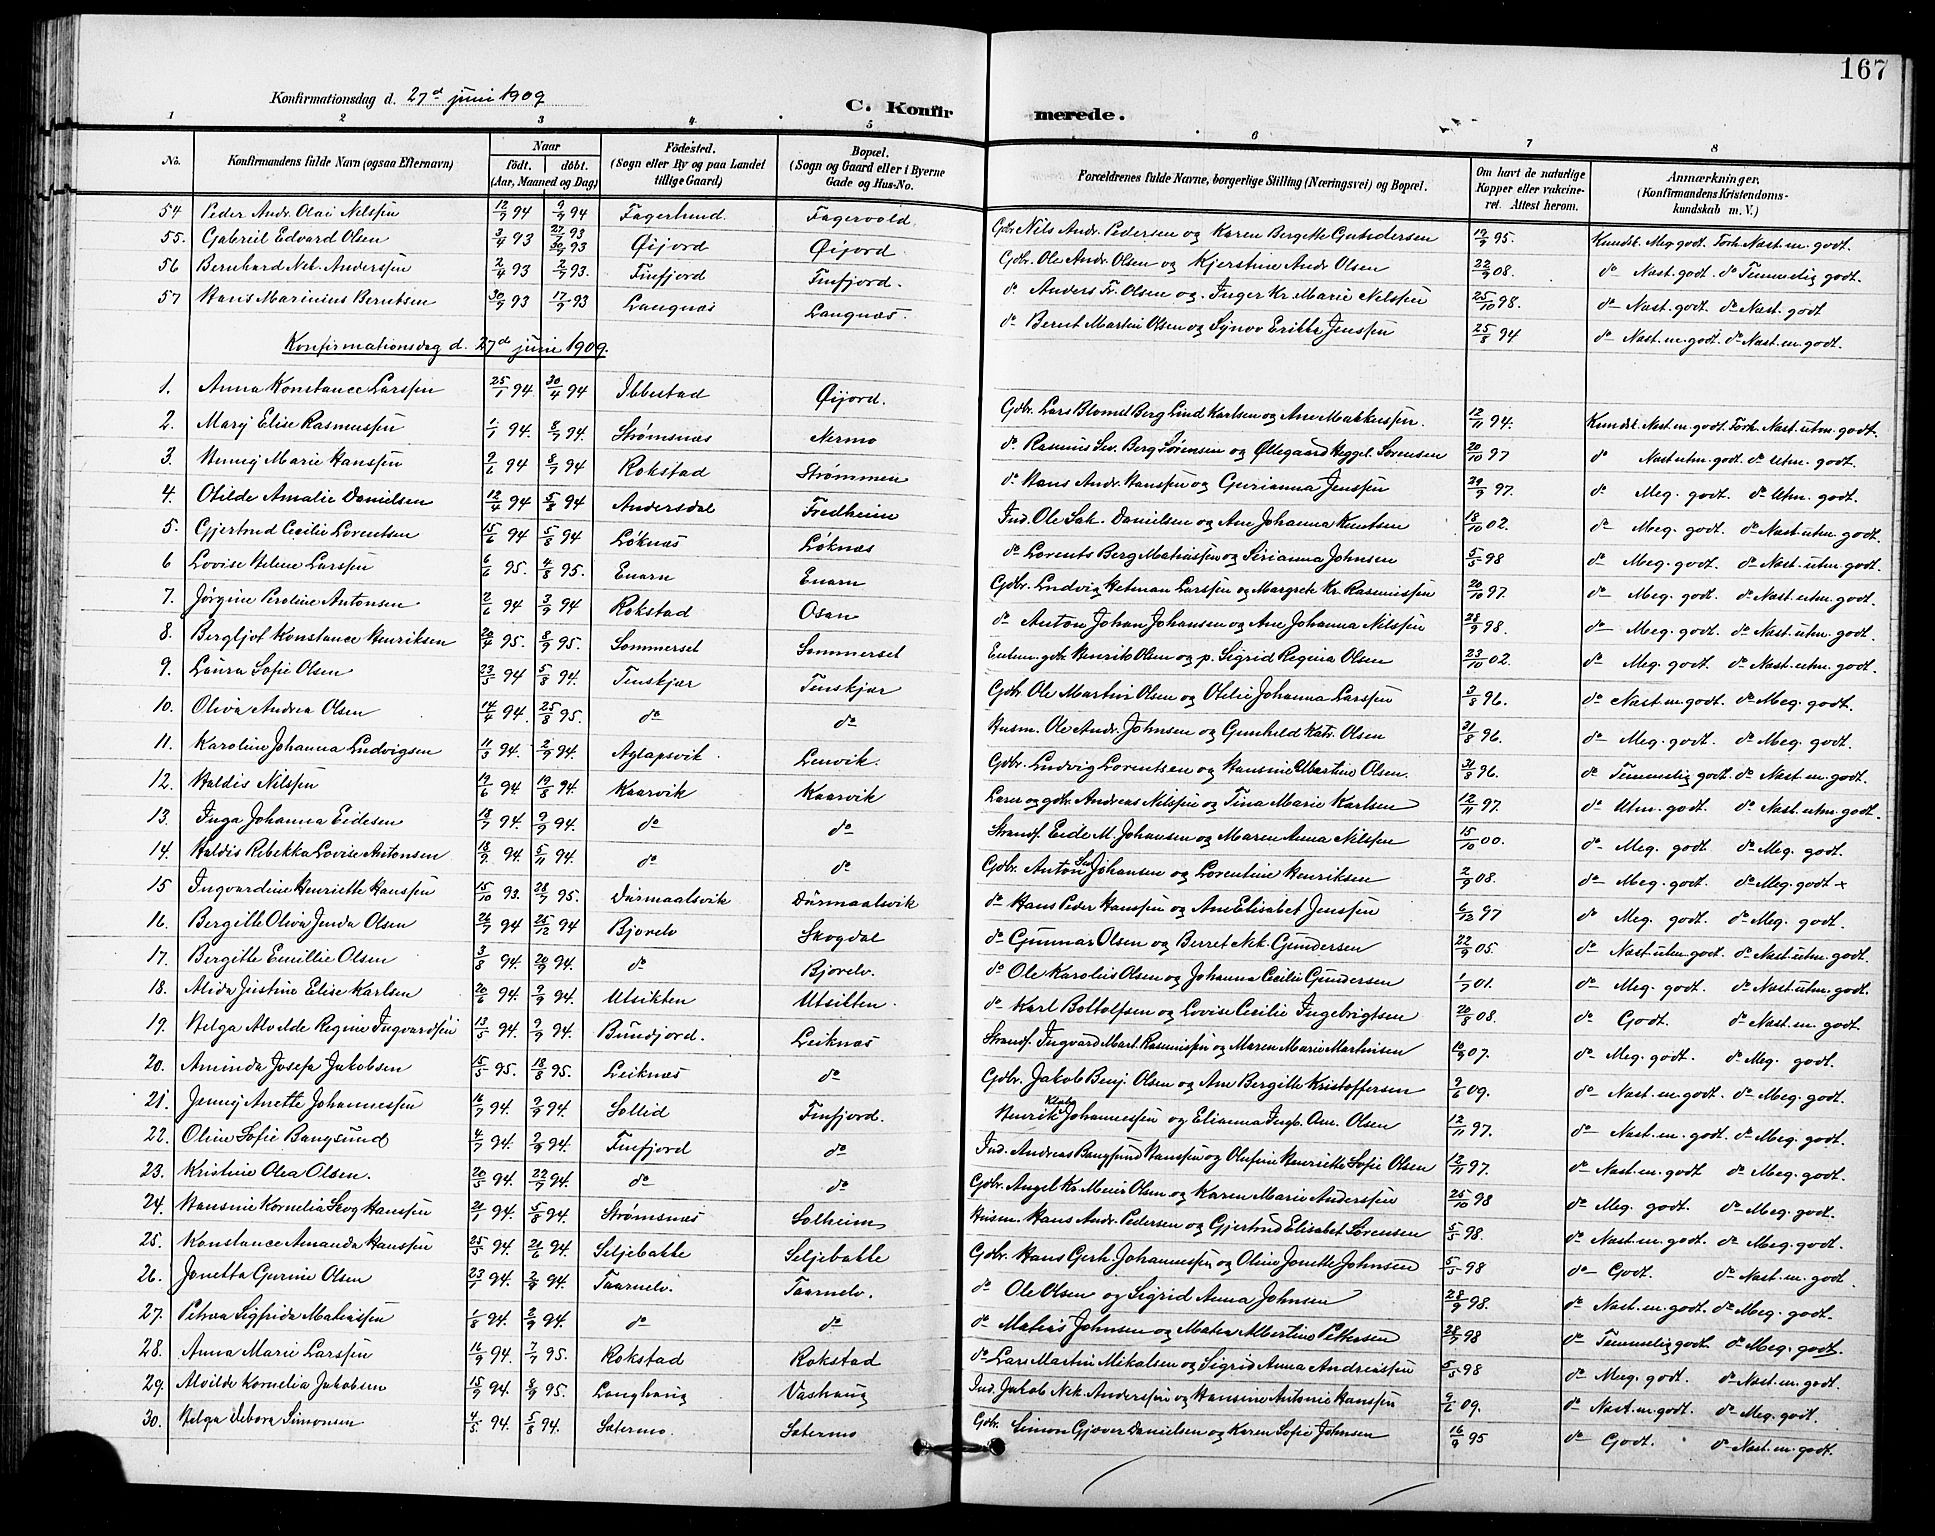 167
Konfirmationsdag d. 27d juni 1909
C. Konfirmerede.
1 2 3 4 5 6 7 8
No. Konfirmandens fulde Navn (ogsaa Efternavn) Naar født. døbt. (Aar, Maaned og Dag) Födested. (Sogn eller By og paa Landet tillige Gaard) Bopæl. (Sogn og Gaard eller i Byerne Gade og Hus-No. Forældrenes fulde Navne, borgerlige Stilling (Næringsvei) og Bopæl. Om havt de naturlige Kopper eller vakcineret. Attest herom. Anmærkninger, (Konfirmandens Kristendomskundskab m. V.)
54 Peder Andr. Olai Nilssen 12/7 94 9/9 94 Fagerlund. Fagervold. Gdbr. Nils Andr. Pedersen og Karen Bergitte Gundersen 19/9 95. Kundsk. Meg. godt. Forh. Nast. m. godt.
55. Gabriel Edvard Olsen 3/4 93 Øijord Øijord. Gdbr. Ole Andr. Olsen og Kjerstine Andr. Olsen 22/9 08. do Nast. godt. do Temmelig godt.
56 Bernhard Nek. Anderssen 2/4 93 2/7 93. Finfjord Finfjord. do Anders Fr. Olsen og Inger Kr. Marie Nilssen 25/10 98. do Nast. godt do Nast. godt
57 Hans Marinius Berntsen 30/7 93 17/9 93 Langnæs Langnæs. do Bernt Martin Olsen og Synov Erikke Jenssen 25/8 94 do Nast. m. godt. do Nast. m. godt.
Konfirmationsdag d. 27d juni 1909.
1. Anna Konstance Larssen 25/1 94 30/4 94 Ibbestad Øijord. Gdbr. Lars Blomel Berg Lind Karlsen og Ane Markussen. 12/11 94. Kundsk. Nast. m. godt Forh. Nast. utm. godt.
2. Mary Elise Rasmussen 1/1 94. 8/7 94. Strømsnæs Nermo do Rasmus Sev. Berg Sørensen og Øllegaard Heggel. Sørensen 20/10 97 do Nast utm. godt. do Utm. godt.
3. Henny Marie Hanssen 9/6 94 8/7 94 Rokstad Strømmen do Hans Andr. Hanssen og Gurianna Jenssen 29/9 97. do Meg. godt do Utm. godt
4. Otilde Amalie Danielsen 12/4 94 5/8 94 Andersdal Fredheim Ind. Ole Sak. Danielsen og Ane Johanna Knutsen 18/10 02. do Meg. godt. do Nast. utm. godt.
5. Gjertrud Cecilie Lorentsen 15/6 94 5/8 94 Løknæs Løknæs do Lorents Berg Mathiassen og Sirianna Johnsen 5/5 98 do Meg. godt. do Nast. utm. godt.
6 Lovise Helene Larssen 6/6 95. 4/8 95. Enarn Enarn Gdbr. Ludvig Hetman Larssen og Margrete Kr. Rasmussen 20/10 97. do Meg. godt do Nast. utm. godt.
7. Jørgine Peroline Antonsen 2/6 94 3/9 94 Rokstad Osan do Anton Johan Johansen og Ane Johanna Nilssen 28/9 98. do Meg. godt. do Nast. utm. godt.
8. Bergljot Konstance Henriksen 20/4 95. 8/9 95. Sommersel Sommersel Enkem. gdbr. Henrik Olsen og p. Sigrid Regina Olsen 23/10 02. do Meg. godt do Nast. utm. godt.
9. Laura Sofie Olsen 23/5 94 5/8 94. Tenskjær Tenskjær Gdbr. Ole Martin Olsen og Otelie Johanna Larssen 3/8 96. do Nast. m. godt. do Meg. godt.
10. Oliva Andrea Olsen 14/4 94. 25/8 95. do do Husm. Ole Andr. Johnsen og Gunhild Katr. Olsen 31/8 96. do Meg. godt. do Meg. godt.
11. Karoline Johanna Ludvigsen 11/3 94. 2/9 94. Aglapsvik. Lenvik. Gdbr. Ludvig Lorentsen og Hansine Albertine Olsen. 31/8 96. do Temmelig godt. do Nast. m. godt.
12. Haldis Nilssen 19/6 94 19/8 94. Kaarvik Kaarvik Lærer og gdbr. Andreas Nilssen og Tina Marie Karlsen 12/11 97. do Utm. godt. do Nast. utm. godt.
13. Inga Johanna Eidesen 18/7 94. 9/9 94. do do Strandf. Eide M. Johansen og Maren Anna Nilssen 15/10 00. do Meg. godt do Meg. godt.
14. Haldis Rebekka Lovise Antonsen 18/9 94. 5/11 94. do do Gdbr. Anton Sev. Johansen og Lorentine Henriksen 2/9 08. do Meg. godt. do Meg. godt
15 Ingvardine Henriette Hanssen 15/10 93. 28/7 95. Dürmaalsvik Dürmaalsvik do Hans Peder Hanssen og Ane Elisabet Jenssen 6/12 97 do Meg. godt do Meg. godt.
16. Bergitte Oliva Jenda Olsen 26/7 94 25/12 94 Bjorelv Skogdal do Gunnar Olsen og Berret Nek. Gundersen 22/9 05. do Nast utm. godt. do Nast. utm. godt.
17. Bergitte Emilie Olsen 3/8 94. 20/9 94. do Bjorelv. do Ole Karolius Olsen og Johanna Cecilie Gundersen 1/7 01. do Meg. godt. do Nast utm. godt.
18. Alida Justine Elise Karlsen 20/6 94. 9/9 94. Utsikten Utsikten. do Karl Boltolfsen og Lovise Cecilie Ingebrigtsen 20/8 08. do Godt. do Nast. m. godt
19. Helga Alvilde Regine Ingvardsen 13/5 94. 9/9 94. Bundjord. Leiknæs Strandf. Ingvard Mart. Rasmussen og Maren Marie Martinsen 10/9 07. do Meg. godt. do Meg. godt.
20. Aminda Josefa Jakobsen 15/5 95. 18/8 95. Leiknæs do Gdbr. Jakob Benj. Olsen og Ane Bergitte Kristoffersen 9/6 09. do Nast. m. godt. do Meg. godt.
21. Jenny Anette Johannessen 16/7 94. 9/9 94. Sollid Finfjord. Henrik Johannessen og Elianna Ingb. Ane. Olsen 12/11 97. do Nast. m. godt. do Meg. godt.
22. Oline Sofie Bangsund 4/7 94. 2/9 94. Finfjord do Ind. Andreas Bangsund Hanssen og Olufine Henriette Sofie Olsen 12/11 97. do Nast. m. godt do Meg. godt.
23. Kristine Olea Olsen. 20/5 94. 22/7 94. do do Gdbr. Angel Kr. Meier Olsen og Karen Marie Anderssen 25/10 98 do Meg. godt. do Meg. godt.
24. Hansine Kornelia Skog Hanssen 20/1 94. 5/8 94. Strømsnæs Solheim Husm. Hans Andr. Pedersen og Gjertrud Elisabet Sørensen 5/5 98. do Nast. m. godt. do Meg. godt.
25. Konstance Amanda Hanssen 25/5 94. 21/6 94. Seljebakke Seljebakke Gdbr. Hans Gerh. Johannessen og Oline Jonette Johnsen 5/5 98 do Godt. do Nast. m. godt.
26. Jonetta Gurine Olsen 23/1 94. 2/9 94. Taarnelv. Taarnelv. do Ole Olsen og Sigrid Anna Johnsen 28/9 98. do Nast. m. godt. do Meg. godt.
27. Petrea Sigfrida Mathiassen 1/8 94. 2/9 94. do do do Mathis Johnsen og Matea Albertine Pettersen 28/7 98 do Temmelig godt. do Meg. godt.
28. Anna Marie Larssen 16/9 94. 7/7 95. Rokstad Rokstad do Lars Martin Mikalsen og Sigrid Anna Andreassen 5/5 98 do Meg. godt. do Nast. m. godt.
29. Alvilde Kornelia Jakobsen 15/7 94. 8/9 95. Langhaug Vashaug Ind. Jakob Nek. Anderssen og Hansine Antonie Hanssen 9/6 09. do Nast. m. godt. do Meg. godt.
30. Helga Debora Simonsen 4/5 94. 5/8 94. Sætermo. Sætermo Gdbr. Simon Gjæver Danielsen og Karen Sofie Johnsen 16/9 95 do Godt. do Nast. m. godt.